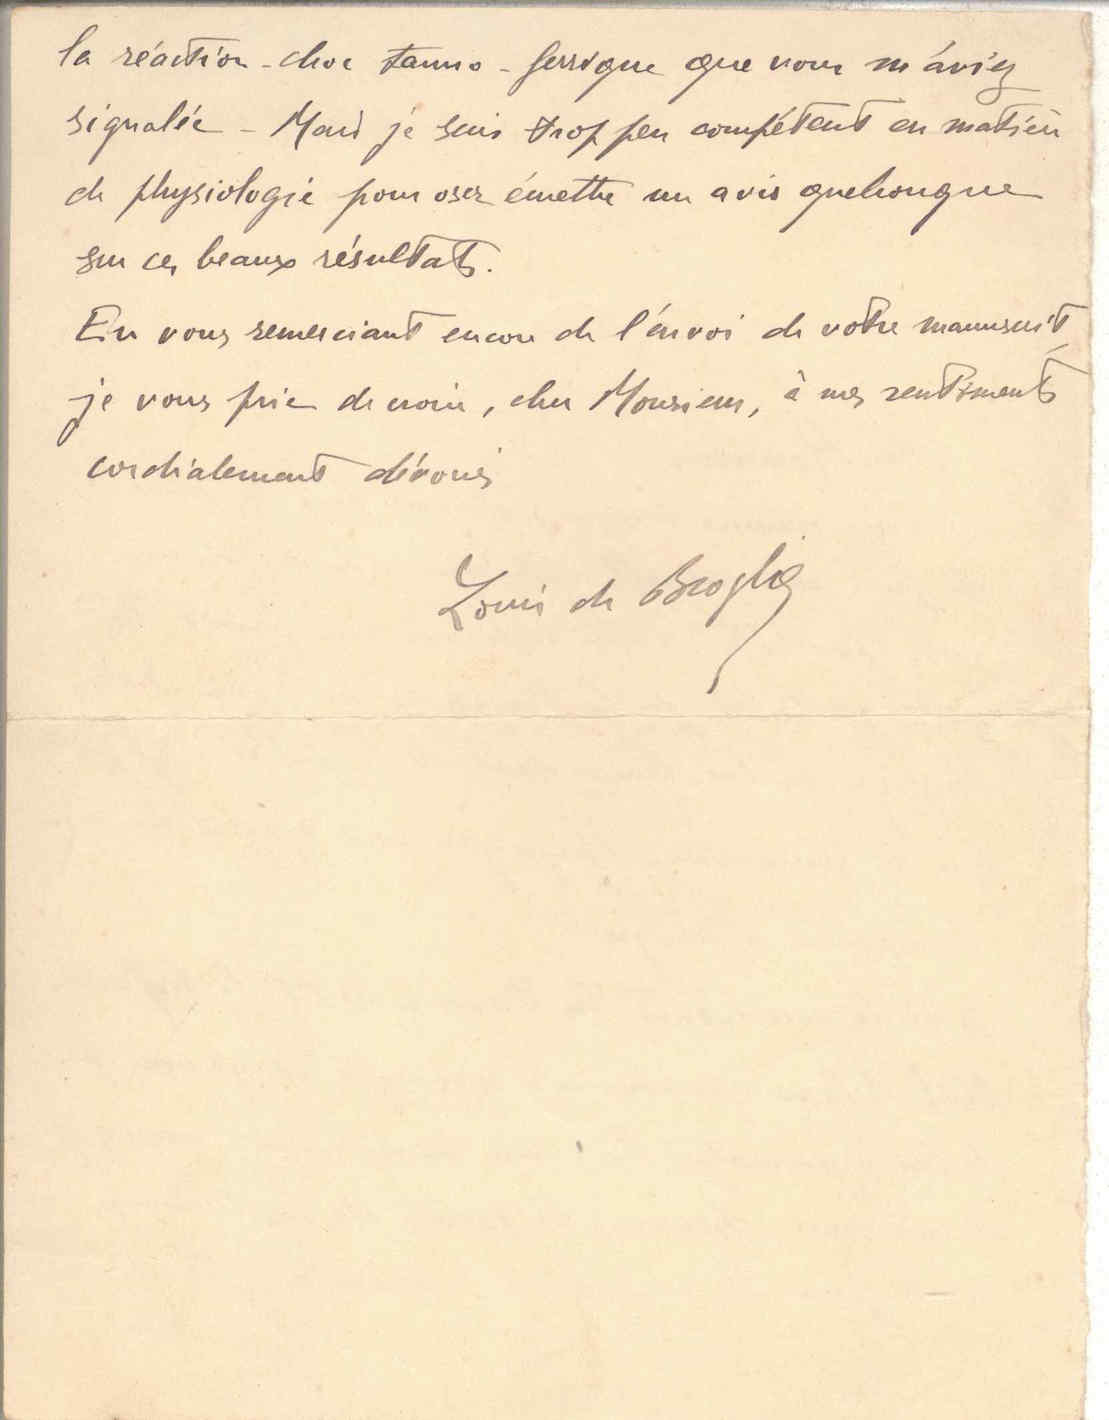 la réaction-choc tanno-ferrique que vous m'aviez
signalée - Mais je suis trop peu compétent en matière
de physiologie pour oser émettre un avis quelconque
sur ces beaux résultats.
En vous remerciant encore de l'envoi de votre manuscrit,
je vous prie de croire, cher Monsieur, à mes sentiments
cordialement dévoués
Louis de Broglie